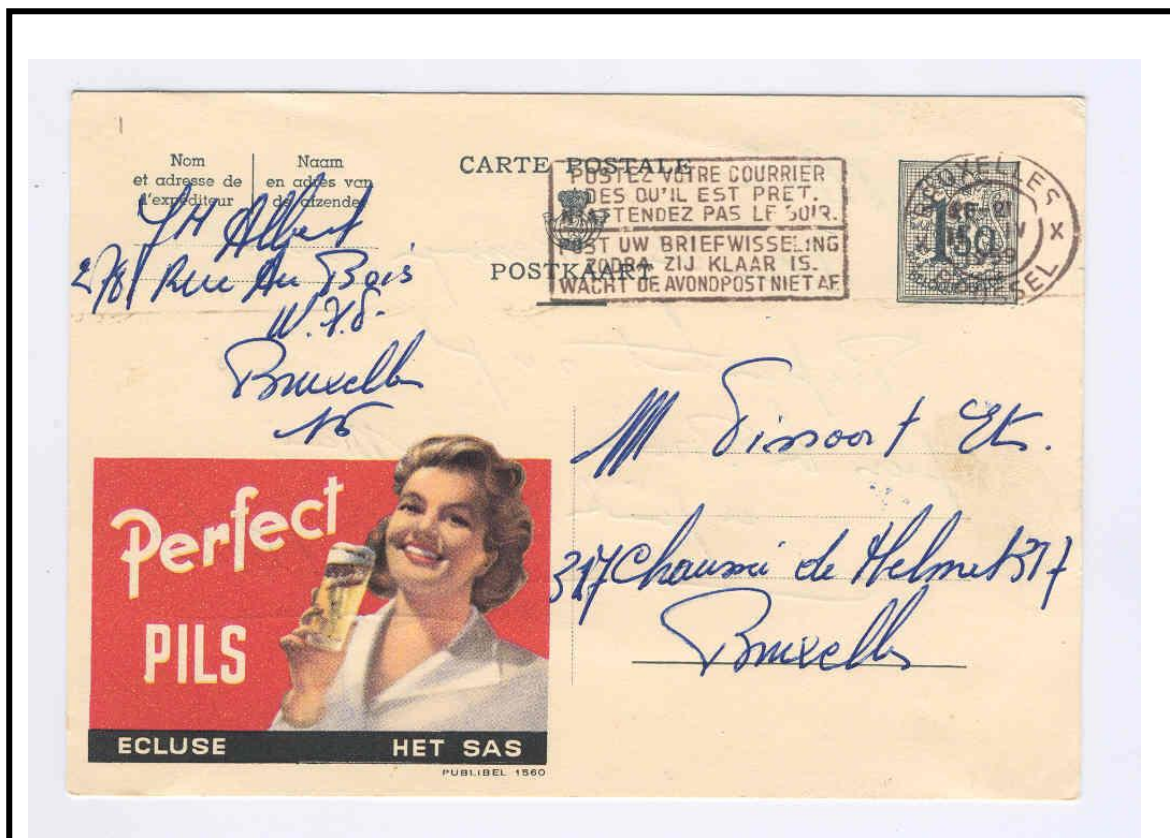 Nom
et adresse de
l'expéditeur
Naam
en adres van
de afzender
CARTE POSTALE
POSTKAART
POSTEZ VOTRE COURRIER
DES QU'IL EST PRET.
N'ATTENDEZ PAS LE SOIR.
POST UW BRIEFWISSELING
ZODRA ZIJ KLAAR IS.
WACHT DE AVONDPOST NIET AF
BRUXELLES X
BRUSSEL
1F50
Albert
278 Rue Au Bois
Bruxelles
M Tissoort Ets.
317 Chaussée de Helmet 317
Bruxelles
Perfect
PILS
ECLUSE HET SAS
PUBLIBEL 1560